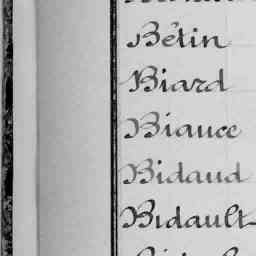 Bétin
Biard
Biance
Bidaud
Bidault